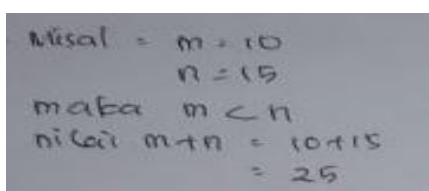 Misal = m = 10
n = 15
maka m < n
nilai m+n = 10+15
= 25